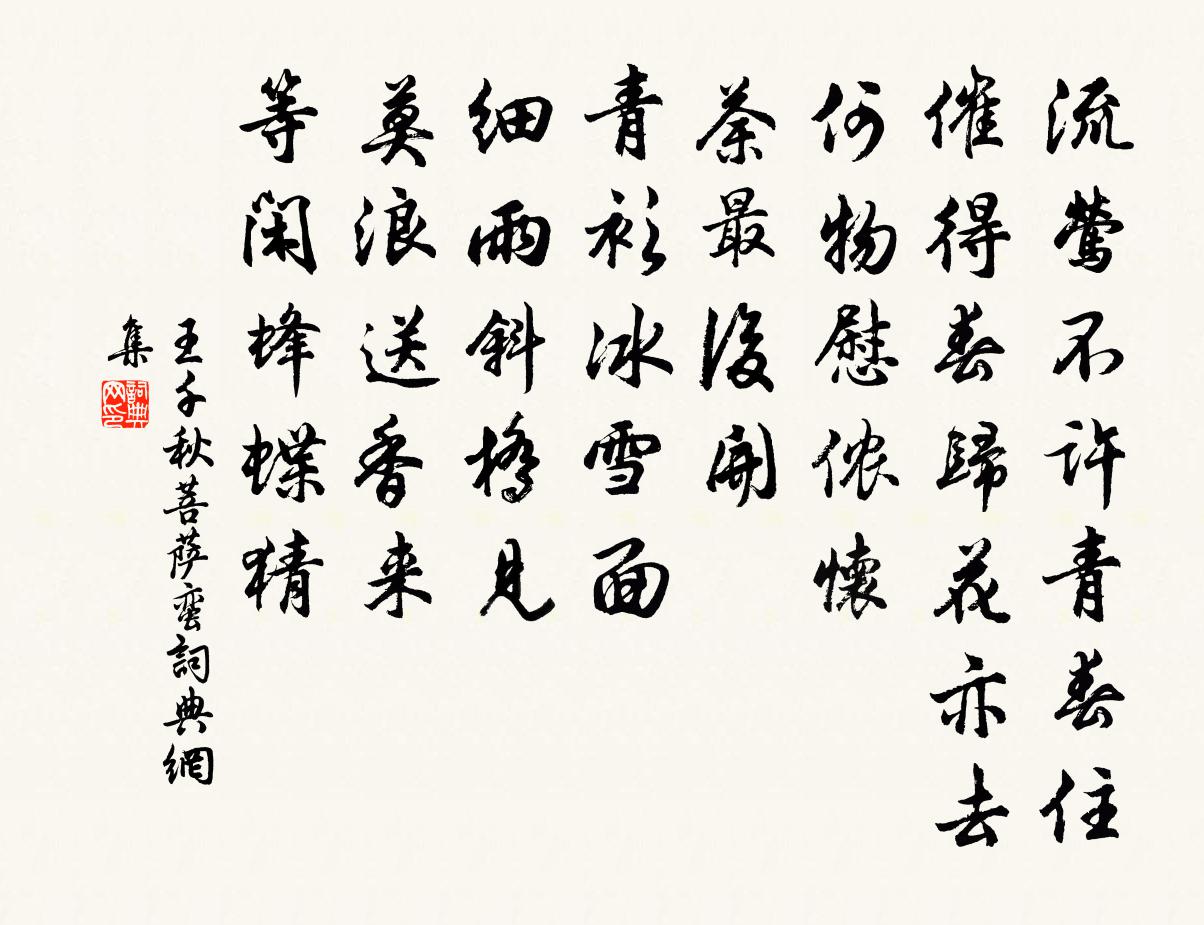 流鶯不許青春住
催得春歸花亦去
何物慰儂懷
荼最後開
青衫冰雪面
細雨斜橋見
莫浪送香来
等閑蜂蝶猜
王千秋菩薩蠻詞典網
集
詞典网印